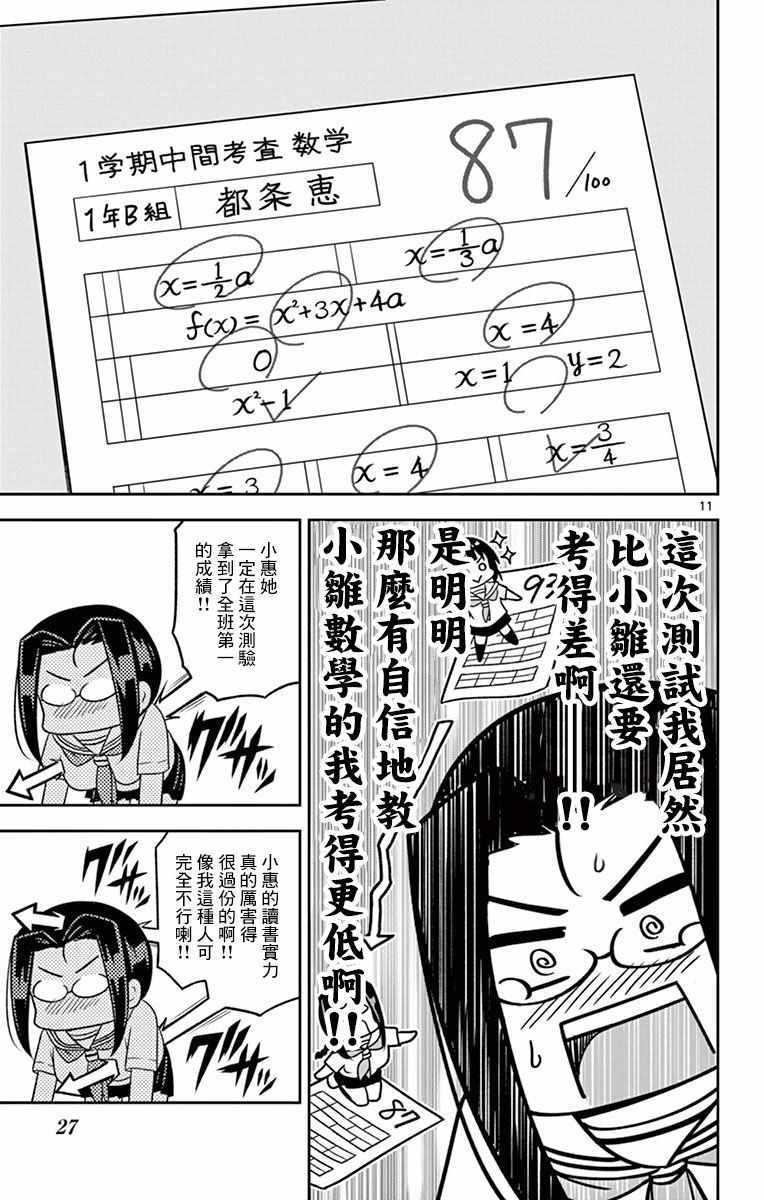 1学期中間考査 数学
87/100
1年B組 都条 恵
x=1/2a
x=1/3a
f(x)=x²+3x+4a
0
x=4
x²-1
x=1 y=2
=3
x=4
x=3/4
11
這次測試我居然
比小雛還要
考得差啊!!
是明明
那麼有自信地教
小雛數學的我考得更低啊!!
93
87
小惠她
一定在這次測驗
拿到了全班第一
的成績!!
グサッ
グサッ
小惠的讀書實力
真的厲害得
很過份的啊!!
像我這種人可
完全不行喇!!
グサッ
グサッ
27